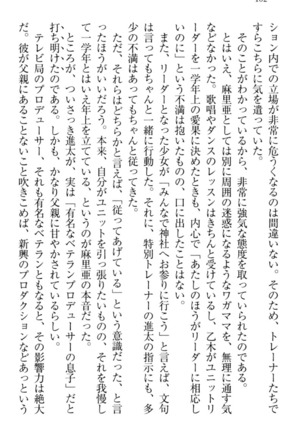 ション内での立場が非常に危うくなるのは間違いない。そのため、トレーナーたちで
すらこちらに気を遣っていた。
そのことがわかっているから、非常に強気な態度を取っていられたのである。
とはいえ、麻里亜としては別に周囲の迷惑になるようなワガママを、無理に通す気
などなかった。歌唱やダンスのレッスンはきちんと受けているし、乙木がユニットリ
ーダーを一学年上の愛果に決めたときも、内心で「あたしのほうがリーダーに相応し
いのに」という不満は抱いたものの、口に出したことはない。
また、リーダーとなった少女が「みんなで神社へお参りに行こう」と言えば、文句
があってもちゃんと一緒に行動した。それに、特別トレーナーの進太の指示にも、多
少の不満はあってもちゃんと従ってきた。
ただ、それらはどちらかと言えば、「従ってあげている」という意識だった、と言
ったほうがいいだろう。本来、自分がユニットを引っ張りたいものの、それを我慢し
て一学年とはいえ年上を立てている、というのが麻里亜の本音だった。
ところが、ついさっき進太が、実は「有名なベテランプロデューサーの息子」だと
打ち明けたのである。しかも、かなり父親に甘やかされているらしい。
テレビ局のプロデューサー、それも有名なベテランともなると、その影響力は絶大
だ。彼が父親にあることないこと吹きこめば、新興のプロダクションなどあっという